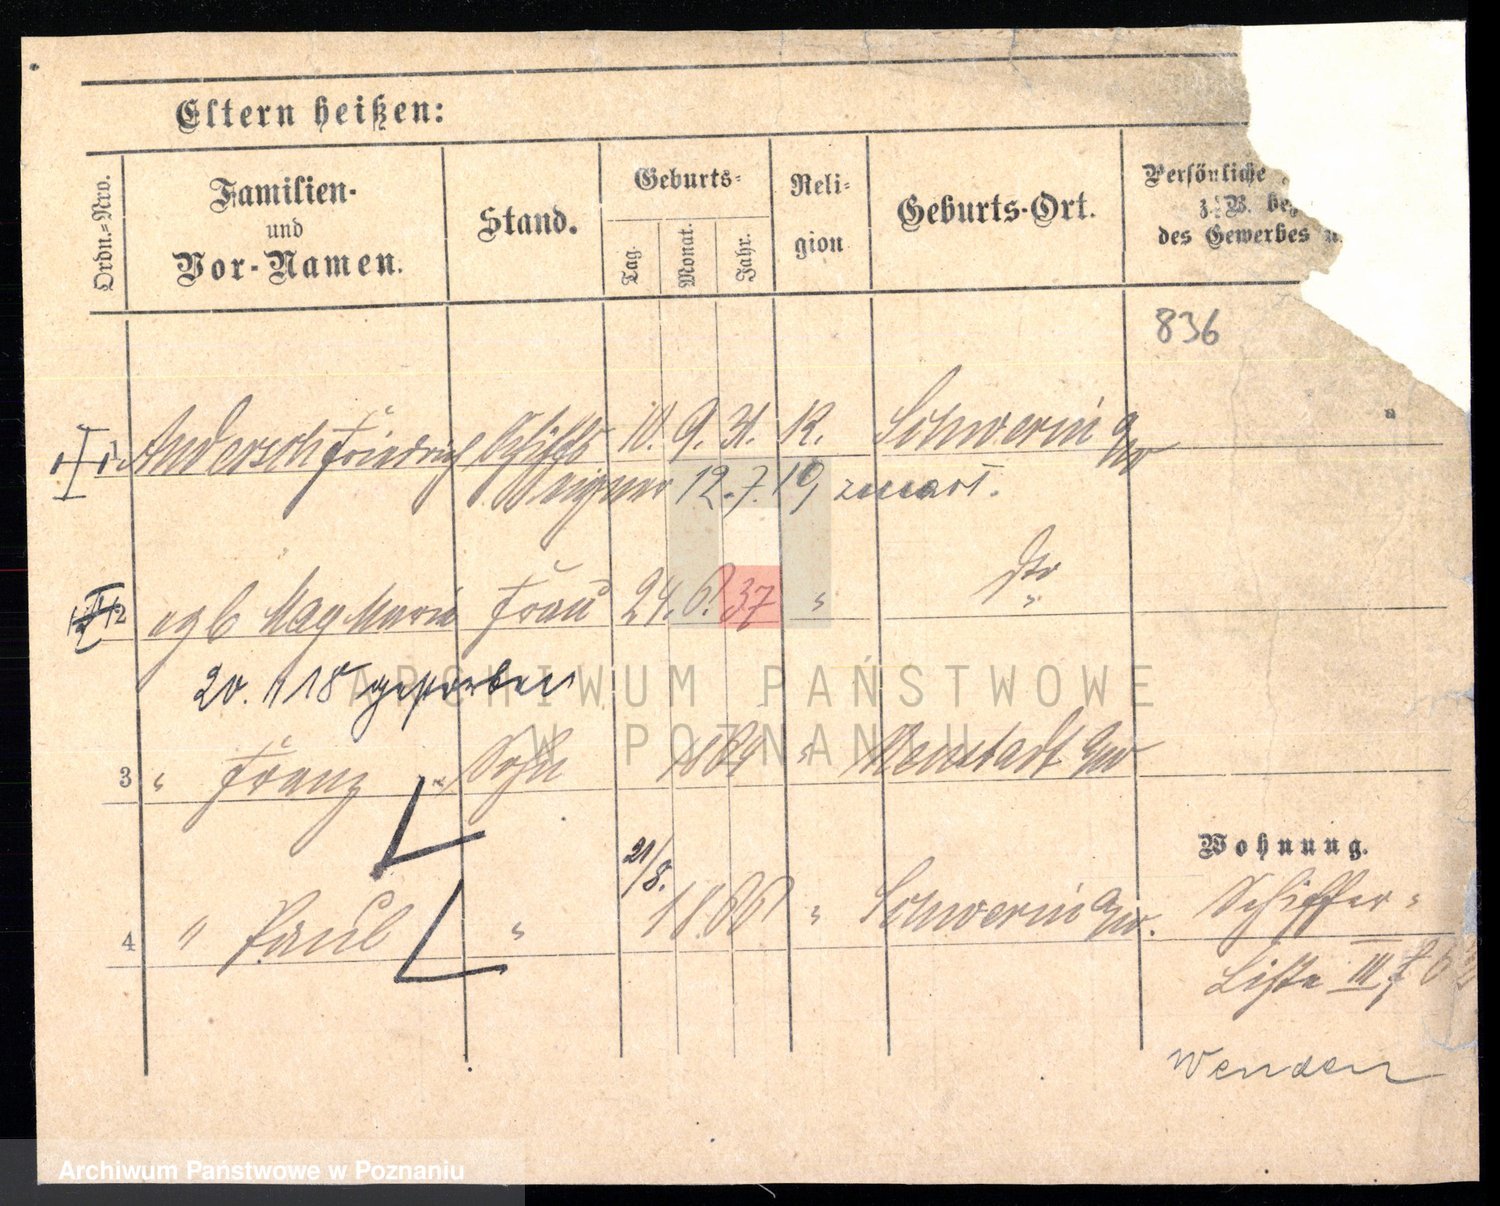 Eltern heißen:
Ordn.-Nro.
Familien-
und
Vor-Namen.
Stand.
Geburts-
Tag.
Monat.
Jahr.
Reli-
gion
Geburts-Ort.
Persönliche
z. B.
des Gewerbes
836
Andersch Friedrich Schiffs 10. 9. 31. K. Schwerin a/W
eigner 12.7.19,
II 2 Marie Frau 24. 6. 37 " dto
20. 1 18 gestorben
3 " Franz " Sohn 1869 " Neustadt a/W
Wohnung.
21/8.
4 " Paul " 1866 " Schwerin a/W.
Schiffer-
Liste III,
Wenden
ARCHIWUM PAŃSTWOWE
W POZNANIU
Archiwum Państwowe w Poznaniu